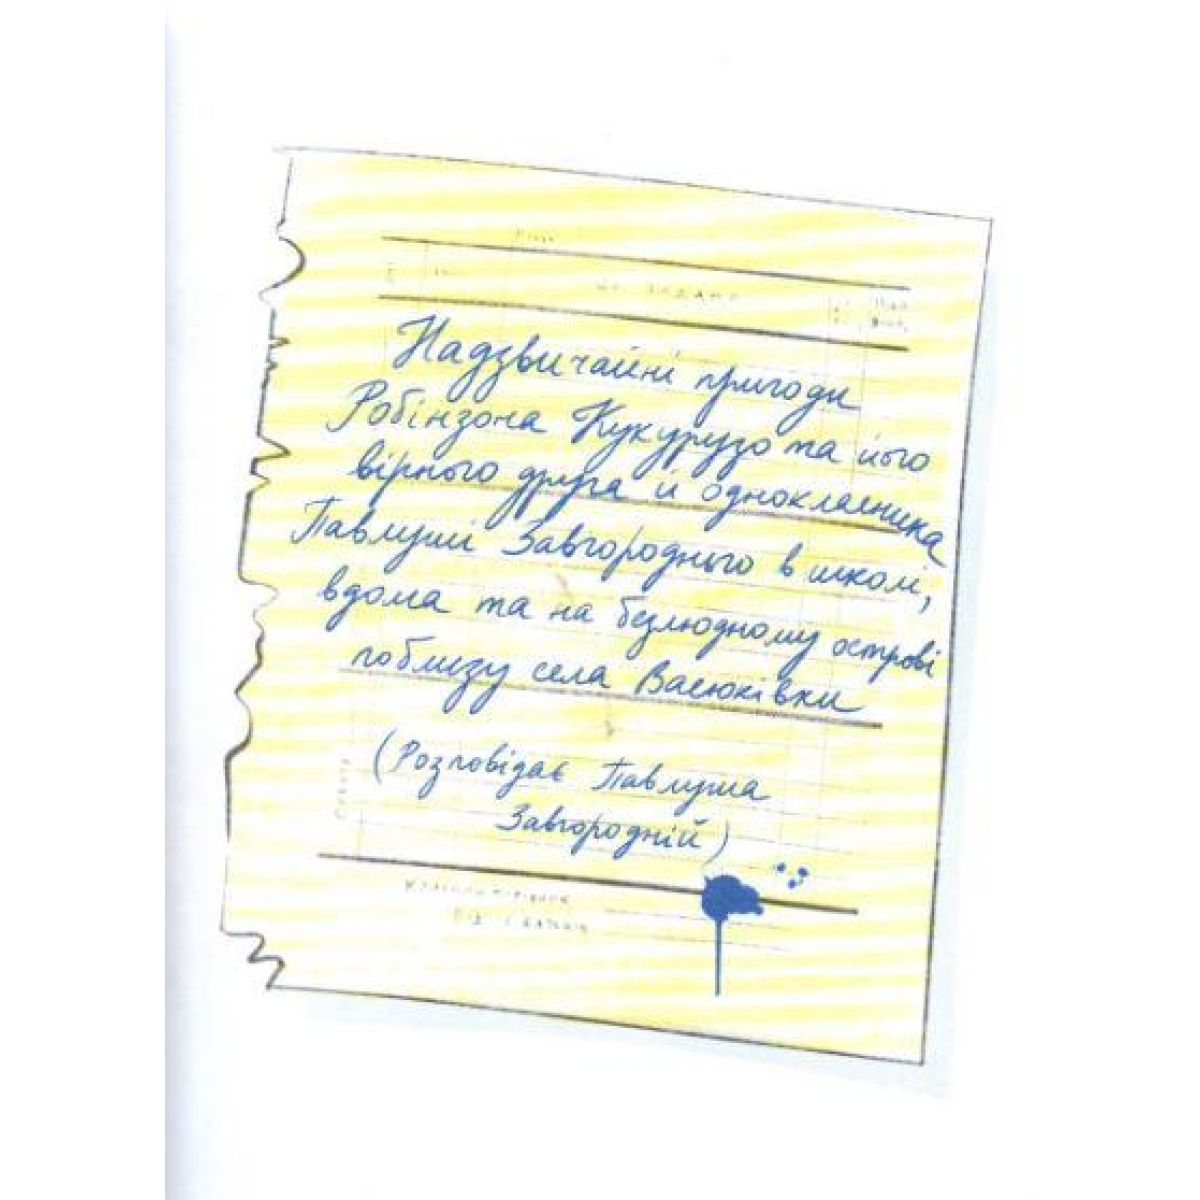 що задано
Надзвичайні пригоди
Робінзона Кукурузо та його
вірного друга й однокласника
Павлуші Завгороднього в школі,
вдома та на безлюдному острові
поблизу села Васюківки
(Розповідає Павлуша
Завгородній)
Субота
Класний керівник